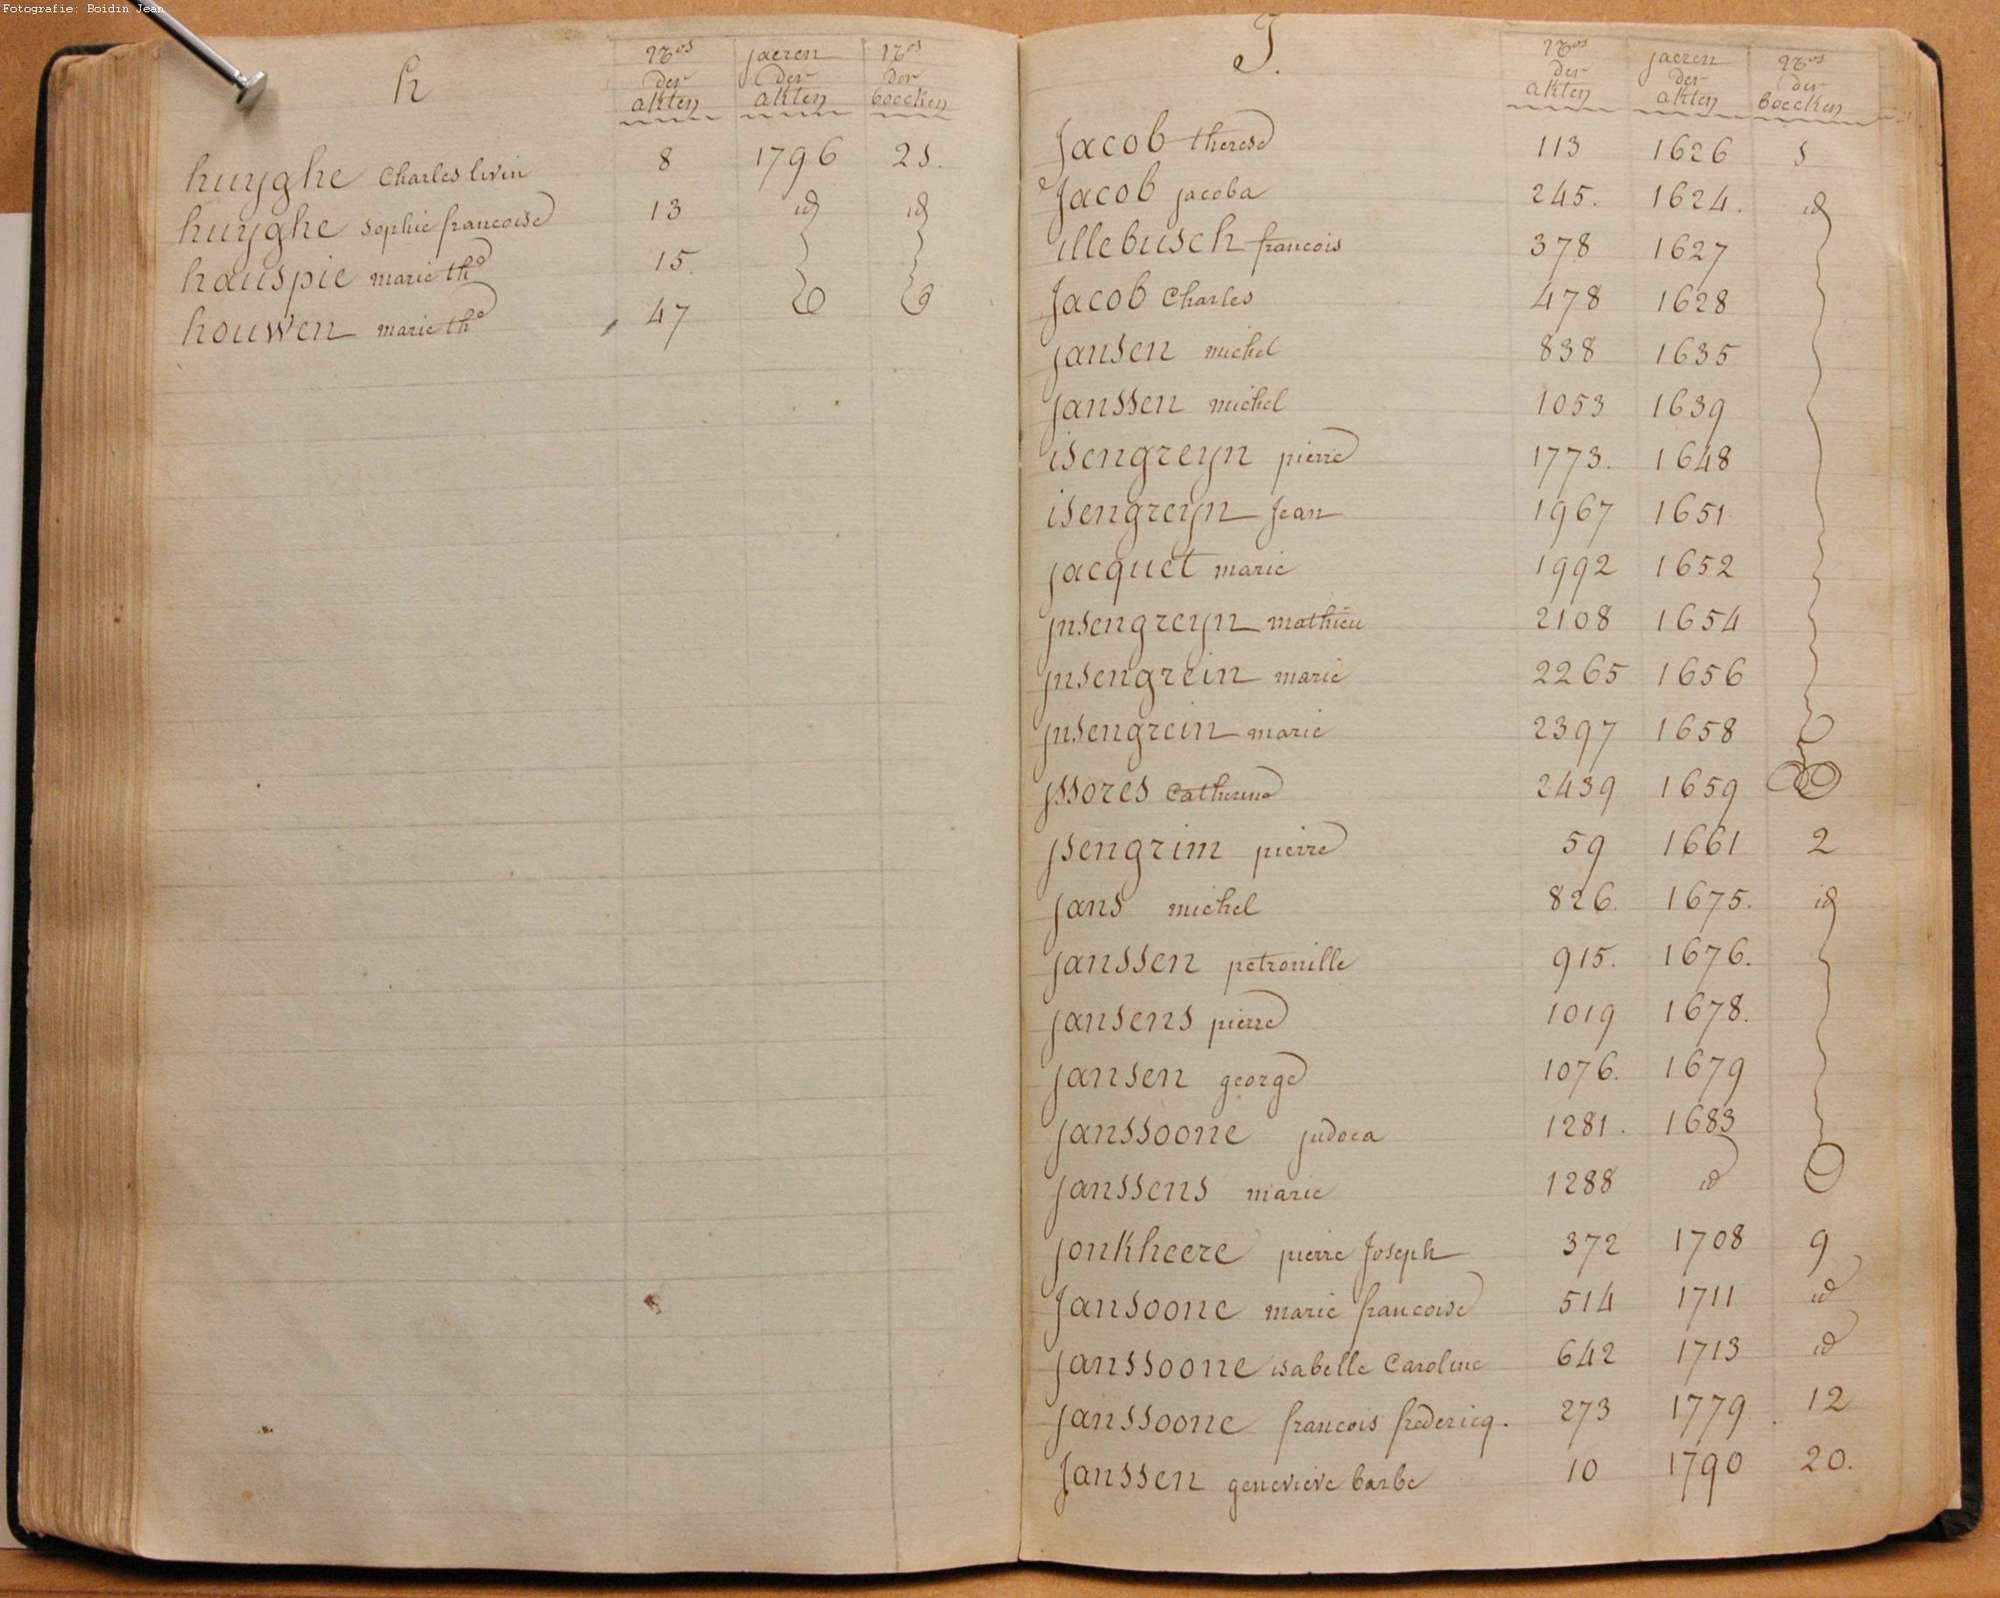 Fotografie: Boidin Jean
h
Nros der akten jaeren der akten Nros der boecken
huyghe Charles livin 8 1796 21.
huyghe sophie francoise 13 id id
hauspie marie the 15.
houwen marie the 47
J.
Nros der akten jaeren der akten Nros der boecken
Jacob therese 113 1626 1
Jacob jacoba 245. 1624. id
illebusch francois 378 1627
Jacob Charles 478 1628
jansen michel 838 1635
janssen michel 1053 1639
isengreyn pierre 1773. 1648
isengreyn Jean 1967 1651
jacquet marie 1992 1652
jnsengreyn mathieu 2108 1654
jnsengrein marie 2265 1656
jnsengrein marie 2397 1658
jssores Catherine 2439 1659
jsengrim pierre 59 1661 2
jans michel 826. 1675. id
janssen petronille 915. 1676.
jansens pierre 1019 1678.
jansen george 1076. 1679
janssoone judoca 1281. 1683
janssens marie 1288 id
jonkheere pierre Joseph 372 1708 9
Jansoone marie francoise 514 1711 id
janssoone isabelle Caroline 642 1713 id
janssoone francois fredericq. 273 1779 12
Janssen genevieve barbe 10 1790 20.